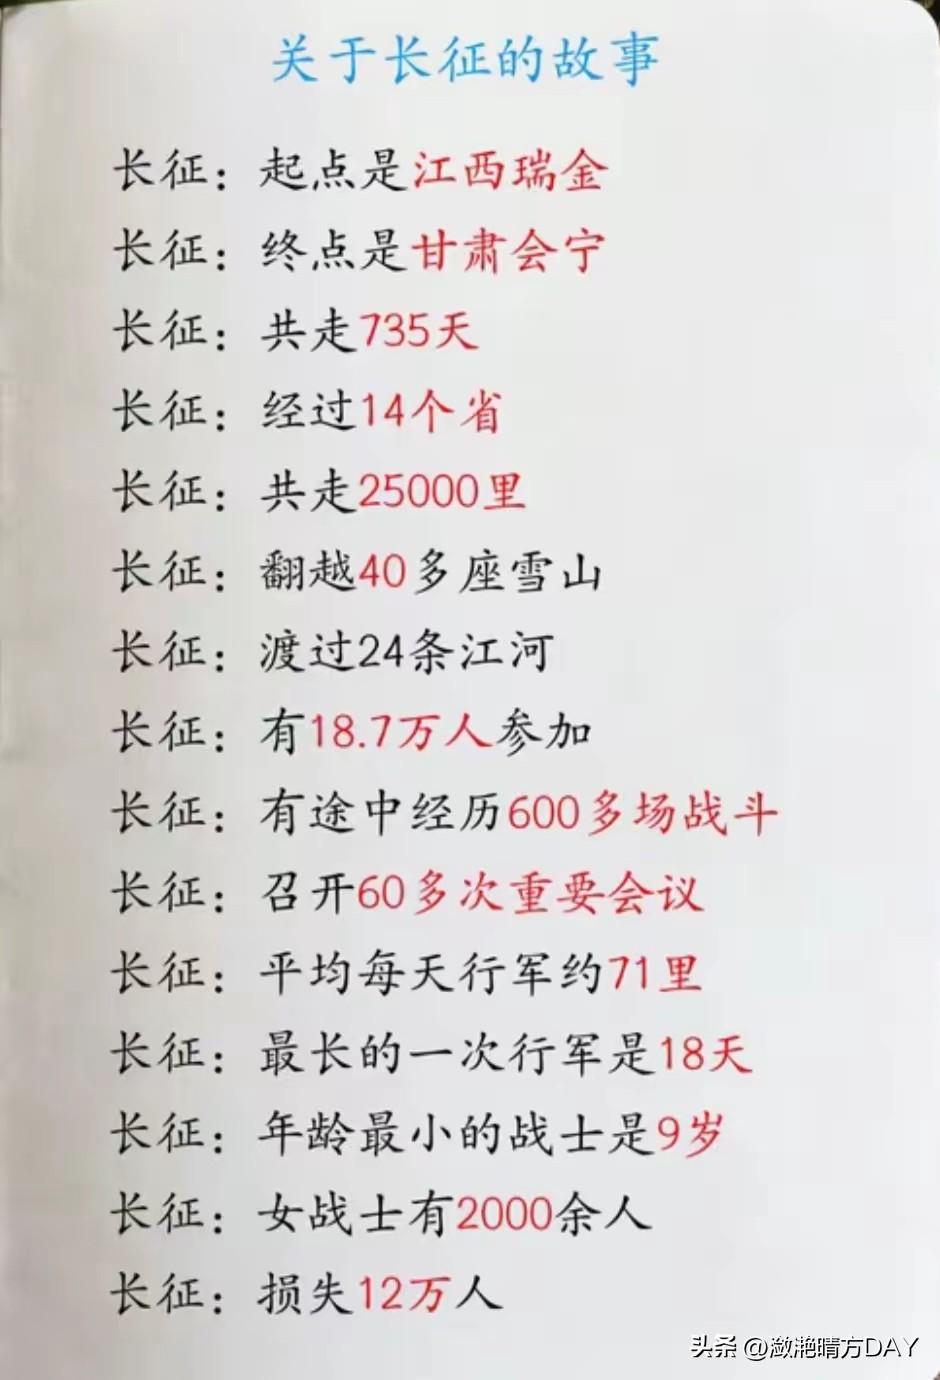 关于长征的故事
长征：起点是江西瑞金
长征：终点是甘肃会宁
长征：共走735天
长征：经过14个省
长征：共走25000里
长征：翻越40多座雪山
长征：渡过24条江河
长征：有18.7万人参加
长征：有途中经历600多场战斗
长征：召开60多次重要会议
长征：平均每天行军约71里
长征：最长的一次行军是18天
长征：年龄最小的战士是9岁
长征：女战士有2000余人
长征：损失12万人
头条 @潋滟晴方DAY